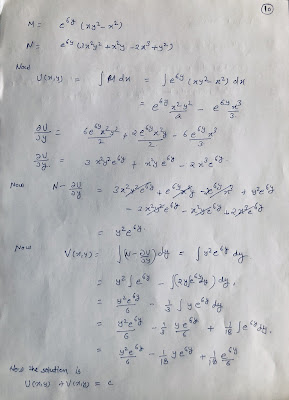 10
M = e^{6y} (xy² - x²)
N = e^{6y} (2x²y² + x²y - 2x³ + y²)
Now
U(x,y) = ∫ M dx = ∫ e^{6y} (xy² - x²) dx
= e^{6y} x²y²/2 - e^{6y} x³/3
∂U/∂y = 6e^{6y} x²y²/2 + 2e^{6y} x²y/2 - 6e^{6y} x³/3
∂U/∂y = 3x²y²e^{6y} + x²y e^{6y} - 2x³e^{6y}.
Now N - ∂U/∂y = 3x²y²e^{6y} + e^{6y}x²y - 2e^{6y}x³ + y²e^{6y}
- 2x²y²e^{6y} - x²ye^{6y} + 2x³e^{6y}
= y²e^{6y}.
Now V(x,y) = ∫(N - ∂U/∂y) dy = ∫ y²e^{6y} dy.
= y² ∫ e^{6y} - ∫(2y ∫e^{6y} dy) dy.
= y²e^{6y}/6 - 1/3 ∫ y e^{6y} dy
= y²e^{6y}/6 - 1/3 y e^{6y}/6 + 1/18 ∫ e^{6y} dy.
= y²e^{6y}/6 - 1/18 y e^{6y} + 1/18 e^{6y}/6
Now the solution is
U(x,y) + V(x,y) = c